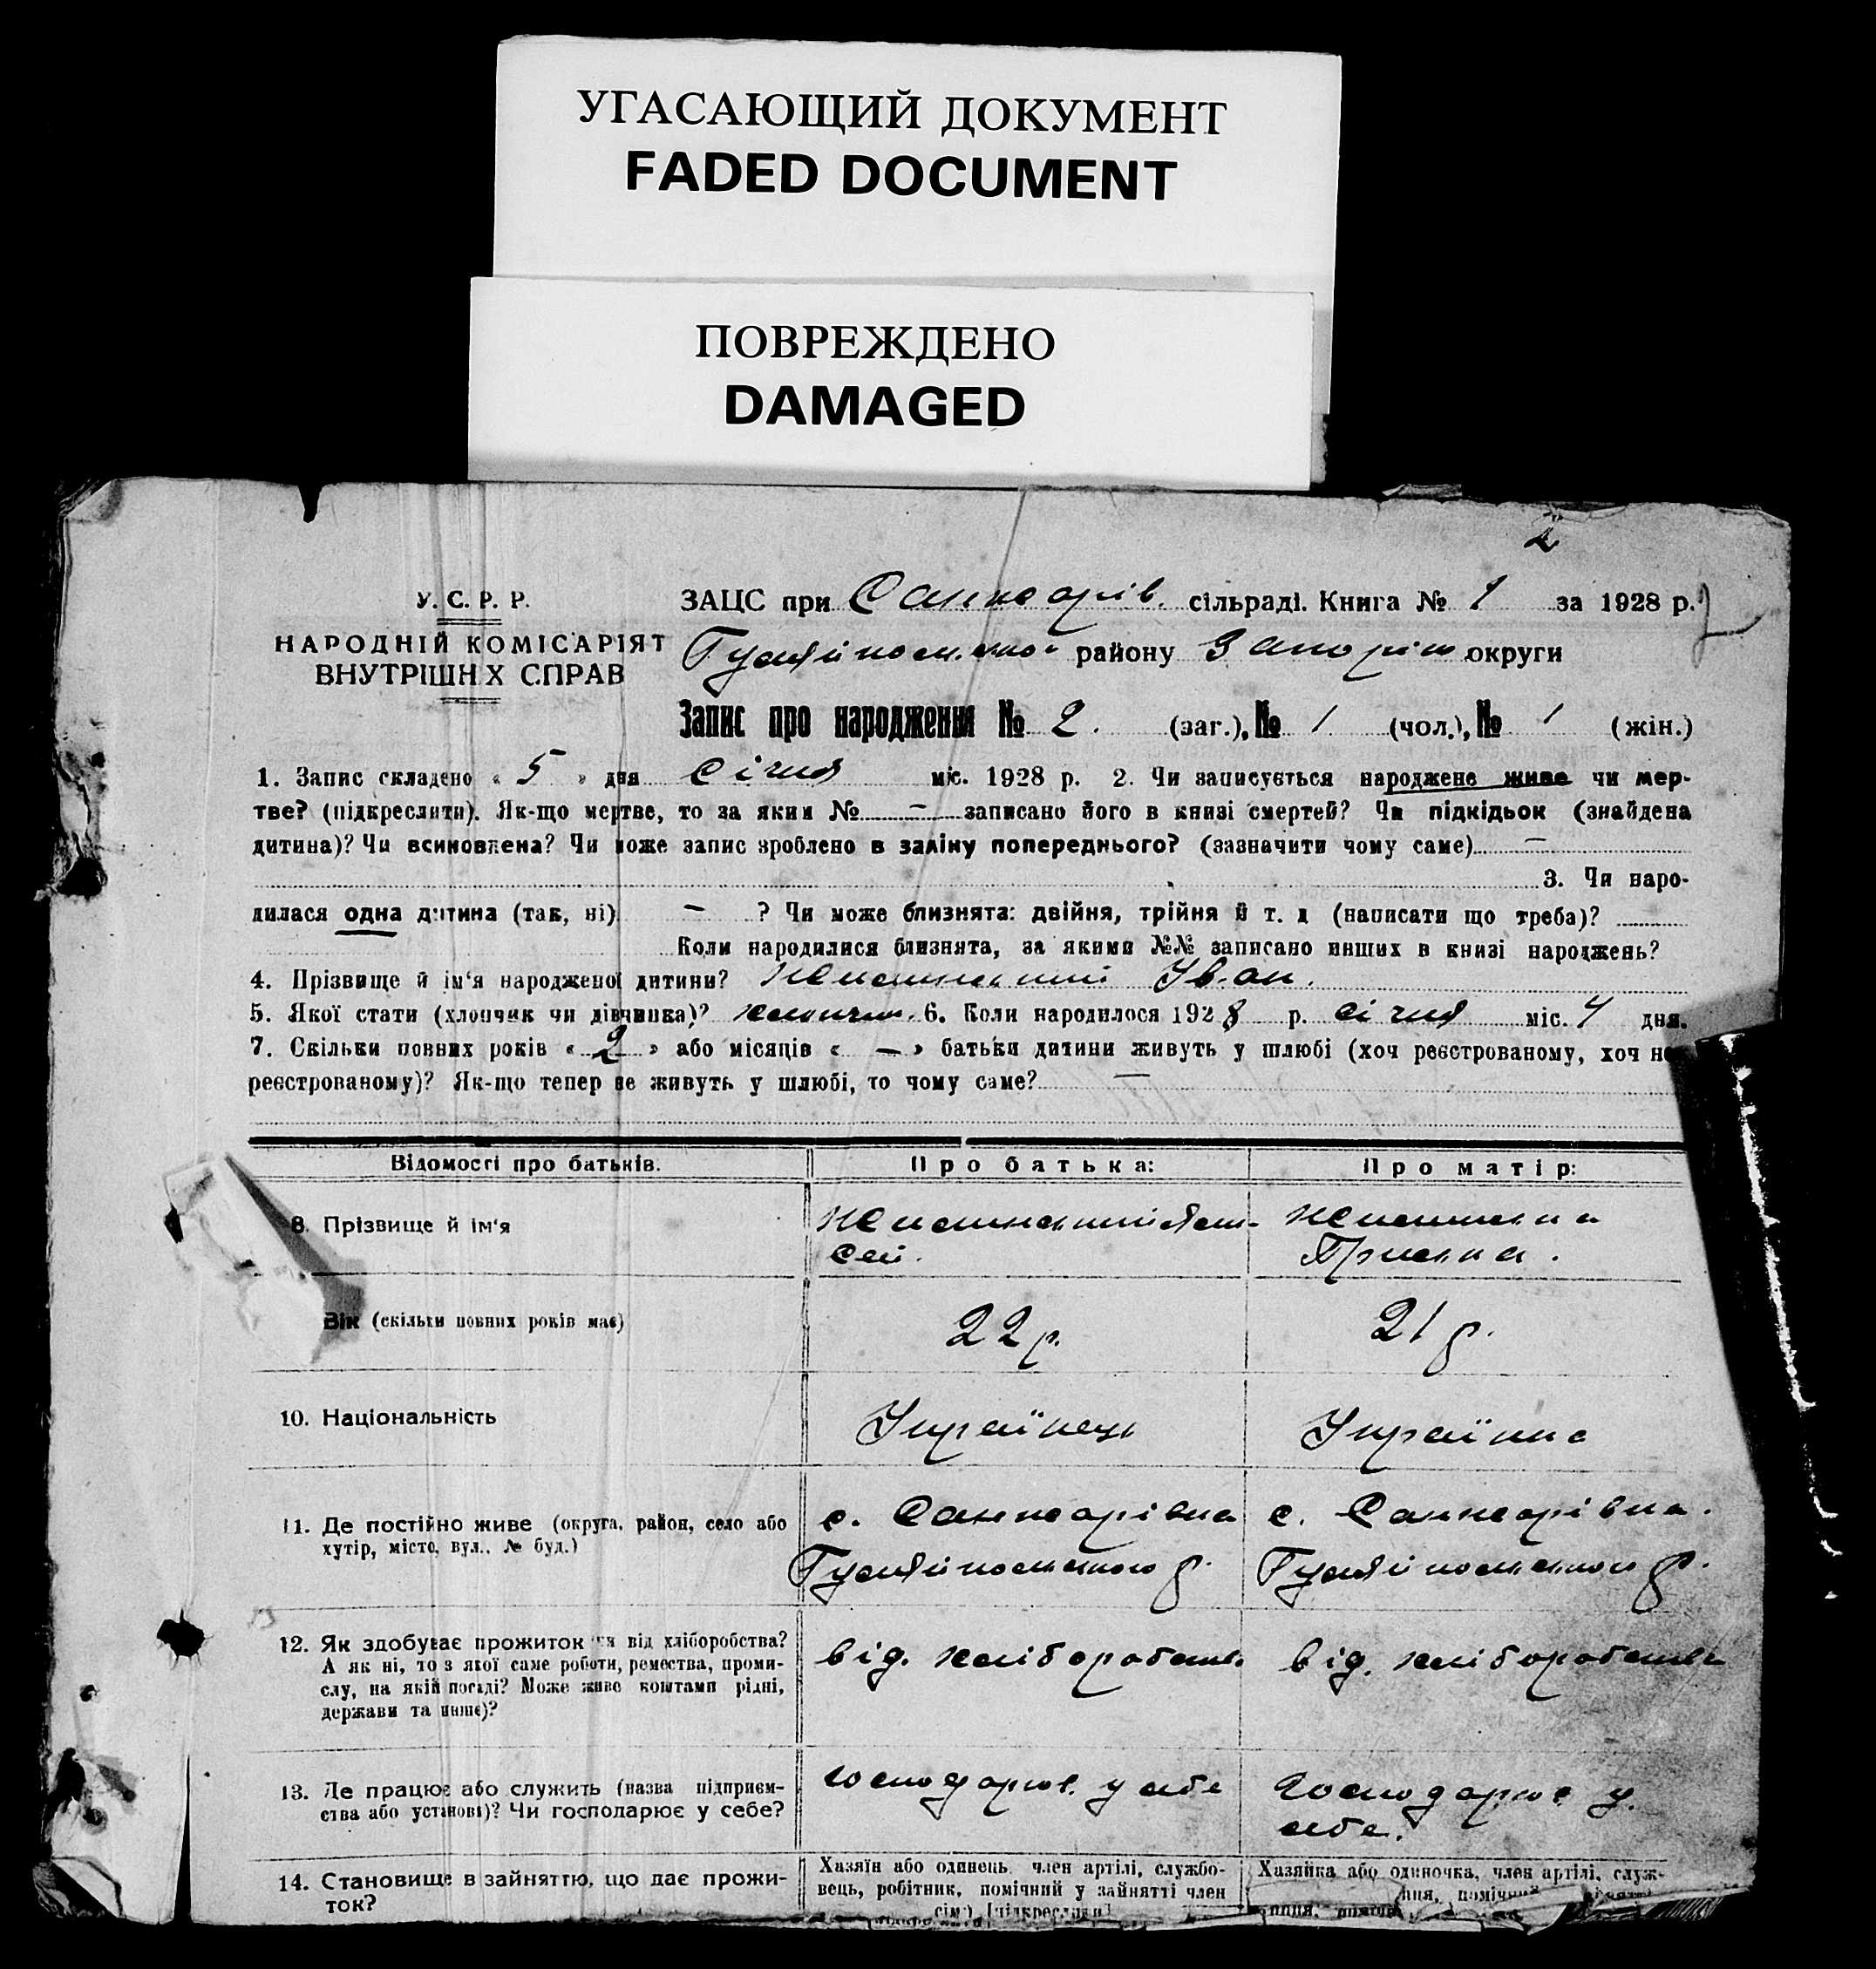 УГАСАЮЩИЙ ДОКУМЕНТ
FADED DOCUMENT
ПОВРЕЖДЕНО
DAMAGED
2
У. С. Р. Р.
НАРОДНІЙ КОМІСАРІЯТ
ВНУТРІШНИХ СПРАВ
ЗАЦС при Санжарів. сільраді. Книга № 1 за 1928 р.
Гуляйпольсько району Запоріж округи
Запис про народження № 2. (заг.), № 1 (чол.), № 1 (жін.)
1. Запис складено « 5 » дня січня міс. 1928 р. 2. Чи записується народжене живе чи мер-
тве? (підкреслити). Як-що мертве, то за яким № — записано його в книзі смертей? Чи підкідьок (знайдена
дитина)? Чи всиновлена? Чи може запис зроблено в заліну попереднього? (зазначити чому саме) —
3. Чи наро-
дилася одна дитина (так, ні) — ? Чи може близнята: двійня, трійня й т. д (написати що треба)?
Коли народилися близнята, за якими №№ записано инших в книзі народжень?
4. Прізвище й ім'я народженої дитини? Іван.
5. Якої стати (хлопчик чи дівчинка)? хлопчик. 6. Коли народилося 1928 р. січня міс. 4 дня.
7. Скільки повних років « 2 » або місяців « — » батьки дитини живуть у шлюбі (хоч реєстрованому, хоч не
реєстрованому)? Як-що тепер не живуть у шлюбі, то чому саме? —
Відомості про батьків.
Про батька:
Про матір:
8. Прізвище й ім'я
Пріська.
Вік (скільки повних років має)
22 р.
21 р.
10. Національність
Українець
Українка
11. Де постійно живе (округа, район, село або
хутір, місто, вул., № буд.)
с. Санжарівка
Гуляйпольського р.
с. Санжарівка.
Гуляйпольського р.
12. Як здобуває прожиток чи від хліборобства?
А як ні, то з якої саме роботи, ремества, проми-
слу, на якій посаді? Може живе коштами рідні,
держави та инше)?
від. хліборобств.
від. хліборобства
13. Де працює або служить (назва підприєм-
ства або установи)? Чи господарює у себе?
господарює у себе
Господарює у
себе.
14. Становище в зайняттю, що дає прожи-
ток?
Хазяїн або одинець, член артілі, службо-
вець, робітник, помічний у зайнятті член
сім'ї [підкреслити]
Хазяйка або одиночка, член артілі, служ-